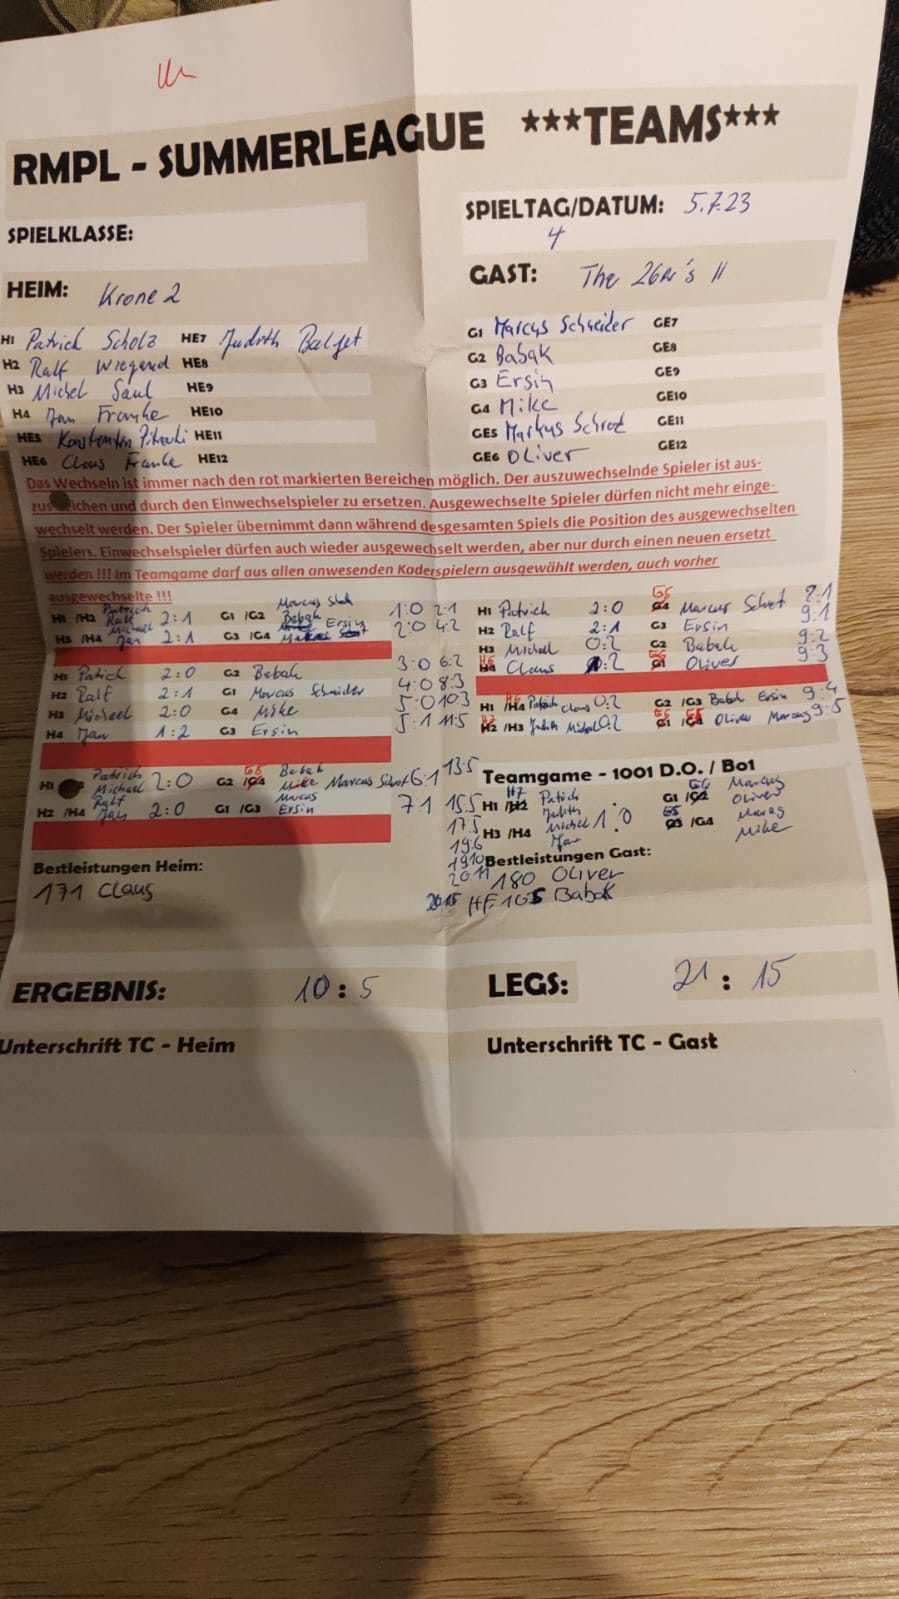 RMPL - SUMMERLEAGUE ***TEAMS***
SPIELKLASSE:
SPIELTAG/DATUM: 5.7.23
4
HEIM: Krone 2
GAST: The 26er's II
H1 Patrick Scholz HE7 Judith
H2 Ralf Wiegand HE8
H3 Michel Saul HE9
H4 Jan Franke HE10
HE5 Konstantin HE11
HE6 Claus Franke HE12
G1 Marcus Schneider GE7
G2 Babak GE8
G3 Ersin GE9
G4 Mike GE10
GE5 Markus Schrod GE11
GE6 Oliver GE12
Das Wechseln ist immer nach den rot markierten Bereichen möglich. Der auszuwechselnde Spieler ist aus-
zustreichen und durch den Einwechselspieler zu ersetzen. Ausgewechselte Spieler dürfen nicht mehr einge-
wechselt werden. Der Spieler übernimmt dann während desgesamten Spiels die Position des ausgewechselten
Spielers. Einwechselspieler dürfen auch wieder ausgewechselt werden, aber nur durch einen neuen ersetzt
werden !!! Im Teamgame darf aus allen anwesenden Kaderspielern ausgewählt werden, auch vorher
ausgewechselte !!!
H1 /H2 Patrick Ralf 2:1 G1 /G2 Marcus Babak 1:0 2:1
H3 /H4 Michael Jan 2:1 G3 /G4 Ersin 2:0 4:2
H1 Patrick 2:0 G2 Babak 3:0 6:2
H2 Ralf 2:1 G1 Marcus Schneider 4:0 8:3
H3 Michael 2:0 G4 Mike 5:0 10:3
H4 Jan 1:2 G3 Ersin 5:1 11:5
H1 Patrich Michael 2:0 G2 /G4 G5 Babak Mike Marcus 6:1 13:5
H2 /H4 Ralf Jan 2:0 G1 /G3 Marcus Ersin 7:1 15:5
H1 Patrick 2:0 G4 G5 Marcus 8:1
H2 Ralf 2:1 G3 Ersin 9:1
H3 Michael 0:2 G2 Babak 9:2
H4 H6 Claus 0:2 G1 G6 Oliver 9:3
H1 /H4 H6 Patrick Claus 0:2 G2 /G3 Babak Ersin 9:4
H2 H7 /H3 Judith Michael 0:2 G1 /G4 Oliver Marcus 9:5
17:5
19:6
19:10
20:11
20:15
Teamgame - 1001 D.O. / Bo1
H1 /H2 H7 Patrick Judith
H3 /H4 Michel Jan
1:0
G1 /G2 G6 Marcus Oliver
G3 G5 /G4 Mike
Bestleistungen Heim:
171 Claus
Bestleistungen Gast:
180 Oliver
HF 105 Babak
ERGEBNIS: 10 : 5
LEGS: 21 : 15
Unterschrift TC - Heim
Unterschrift TC - Gast